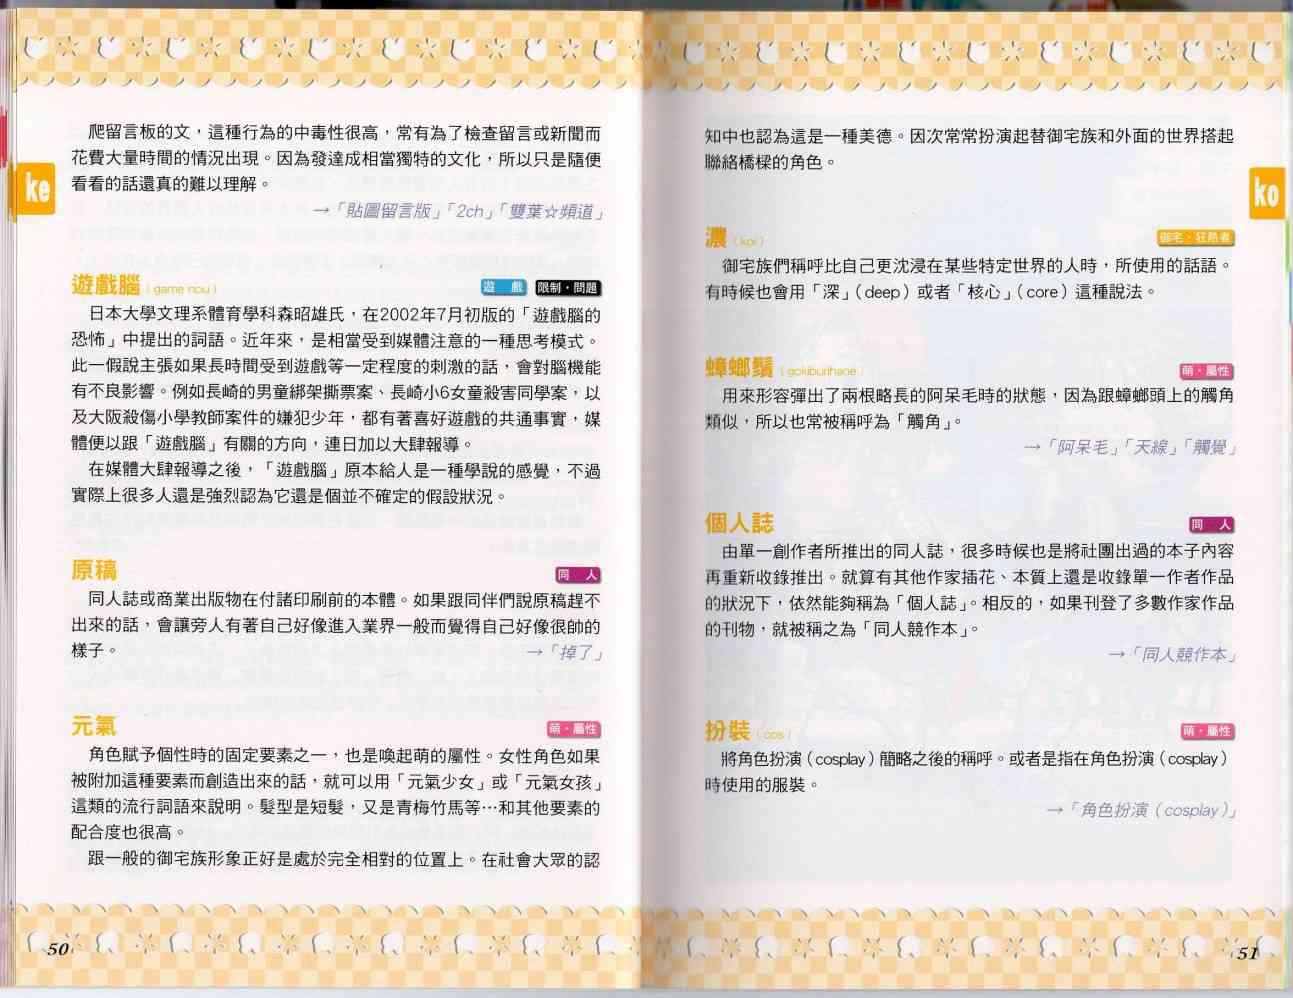 爬留言板的文，這種行為的中毒性很高，常有為了檢查留言或新聞而
花費大量時間的情況出現。因為發達成相當獨特的文化，所以只是隨便
看看的話還真的難以理解。
→「貼圖留言版」「2ch」「雙葉☆頻道」
ke
遊戲腦（game nou） 遊　戲 限制・問題
日本大學文理系體育學科森昭雄氏，在2002年7月初版的「遊戲腦的
恐怖」中提出的詞語。近年來，是相當受到媒體注意的一種思考模式。
此一假說主張如果長時間受到遊戲等一定程度的刺激的話，會對腦機能
有不良影響。例如長崎的男童綁架撕票案、長崎小6女童殺害同學案，以
及大阪殺傷小學教師案件的嫌犯少年，都有著喜好遊戲的共通事實，媒
體便以跟「遊戲腦」有關的方向，連日加以大肆報導。
在媒體大肆報導之後，「遊戲腦」原本給人是一種學說的感覺，不過
實際上很多人還是強烈認為它還是個並不確定的假設狀況。
原稿 同　人
同人誌或商業出版物在付諸印刷前的本體。如果跟同伴們說原稿趕不
出來的話，會讓旁人有著自己好像進入業界一般而覺得自己好像很帥的
樣子。 →「掉了」
元氣 萌・屬性
角色賦予個性時的固定要素之一，也是喚起萌的屬性。女性角色如果
被附加這種要素而創造出來的話，就可以用「元氣少女」或「元氣女孩」
這類的流行詞語來說明。髮型是短髮，又是青梅竹馬等…和其他要素的
配合度也很高。
跟一般的御宅族形象正好是處於完全相對的位置上。在社會大眾的認
50
知中也認為這是一種美德。因次常常扮演起替御宅族和外面的世界搭起
聯絡橋樑的角色。
ko
濃（koi） 御宅・狂熱者
御宅族們稱呼比自己更沈浸在某些特定世界的人時，所使用的話語。
有時候也會用「深」（deep）或者「核心」（core）這種說法。
蟑螂鬚（gokiburihane） 萌・屬性
用來形容彈出了兩根略長的阿呆毛時的狀態，因為跟蟑螂頭上的觸角
類似，所以也常被稱呼為「觸角」。
→「阿呆毛」「天線」「觸覺」
個人誌 同　人
由單一創作者所推出的同人誌，很多時候也是將社團出過的本子內容
再重新收錄推出。就算有其他作家插花、本質上還是收錄單一作者作品
的狀況下，依然能夠稱為「個人誌」。相反的，如果刊登了多數作家作品
的刊物，就被稱之為「同人競作本」。
→「同人競作本」
扮裝（cos） 萌・屬性
將角色扮演（cosplay）簡略之後的稱呼。或者是指在角色扮演（cosplay）
時使用的服裝。
→「角色扮演（cosplay）」
51